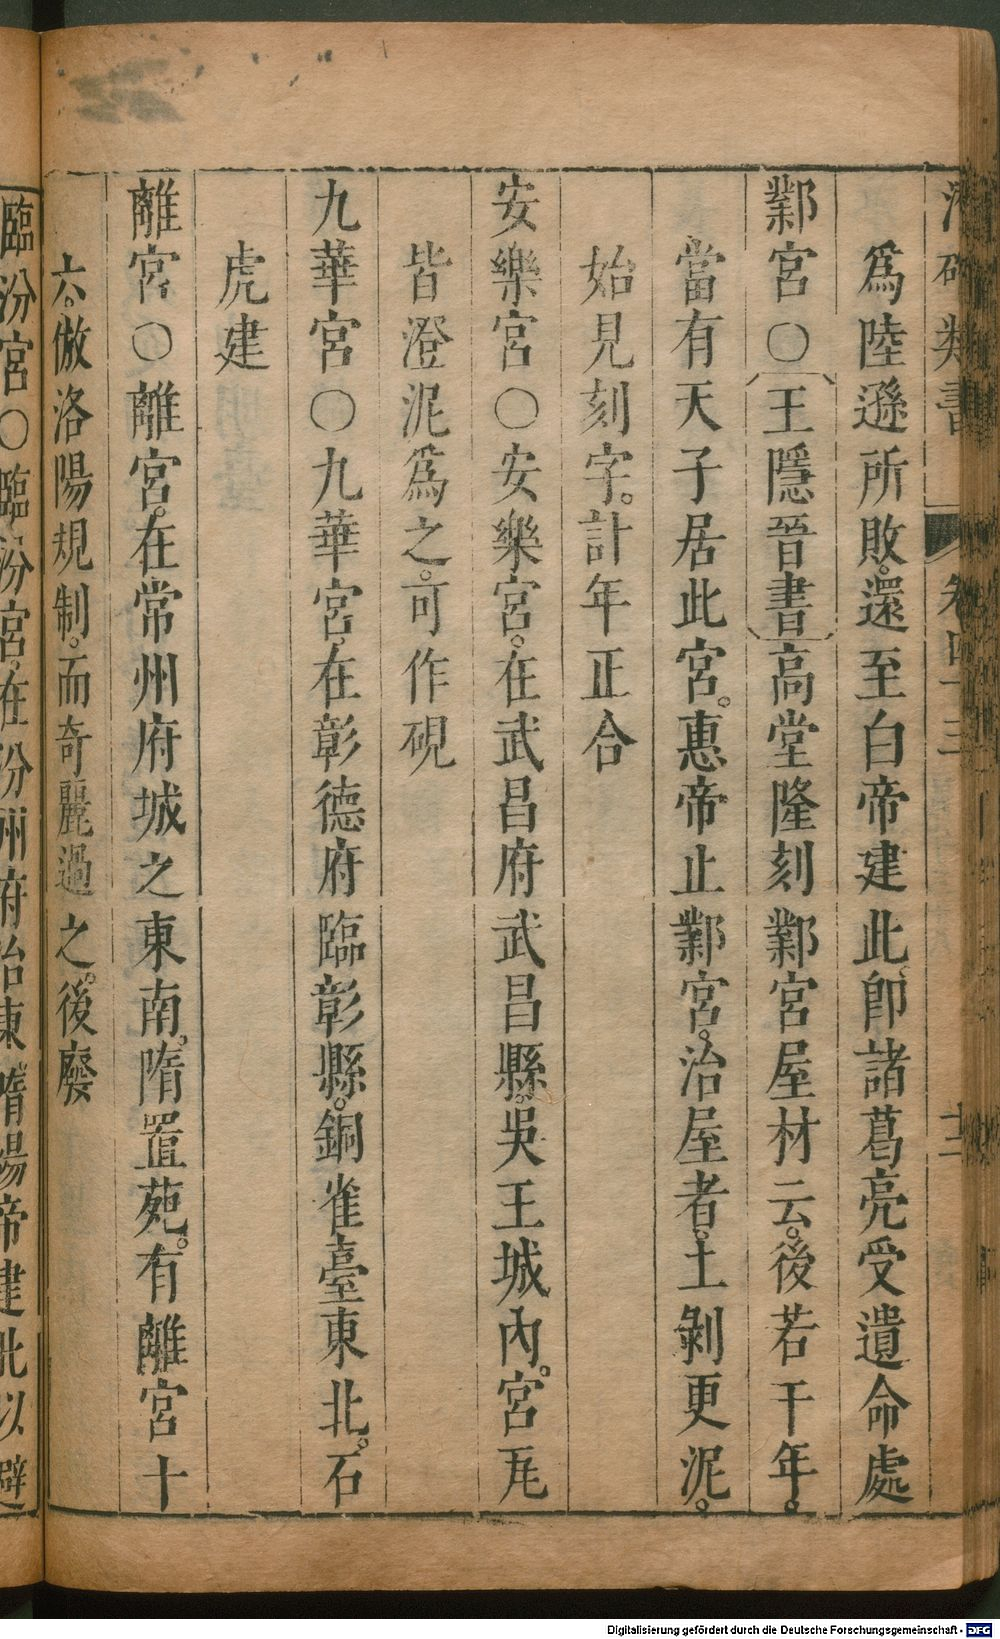 類書 卷四十三 十二
爲陸遜所敗。還至白帝建此。卽諸葛亮受遺命處
鄴宮○王隱晉書高堂隆刻鄴宮屋材云。後若干年。
當有天子居此宮。惠帝止鄴宮。治屋者。土剝更泥。
始見刻字。計年正合
安樂宮○安樂宮。在武昌府武昌縣。吳王城內。宮瓦
皆澄泥爲之。可作硯
九華宮○九華宮。在彰德府臨彰縣。銅雀臺東北。石
虎建
離宮○離宮。在常州府城之東南。隋置苑。有離宮十
六。倣洛陽規制。而奇麗過之。後廢
臨汾宮○臨汾宮。在汾州府治東。隋煬帝建此以避
Digitalisierung gefördert durch die Deutsche Forschungsgemeinschaft - DFG